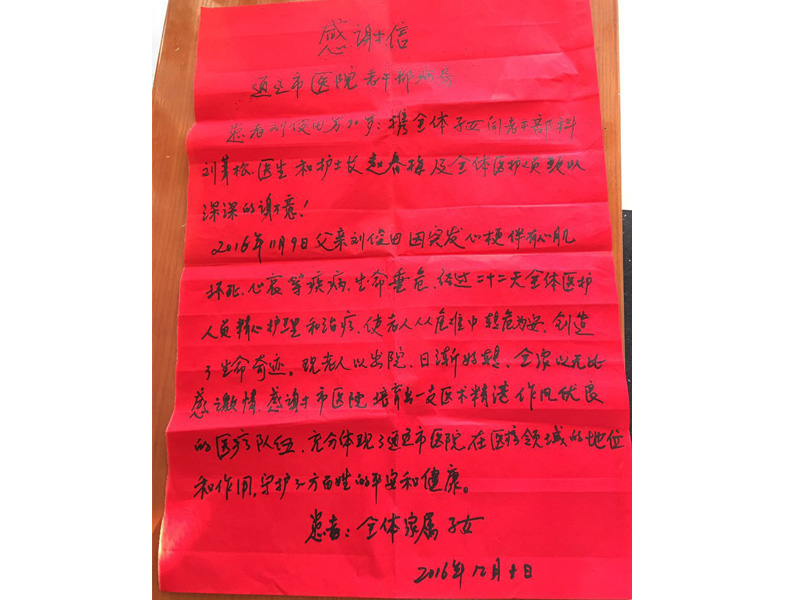 感谢信
通辽市医院老干部病房
患者刘俊田男71岁:携全体子女向老干部科
医生和护士长赵春梅及全体医护人员致以
深深的谢意!
2016年11月9日父亲刘俊田因突发心梗伴有心肌
坏死、心衰等疾病,生命垂危、经过二十二天全体医护
人员精心护理和治疗,使老人从危难中转危为安,创造
了生命奇迹。现老人以出院,日渐好转、全家以无比
感激情,感谢市医院培育出一支医术精湛作风优良
的医疗队伍、充分体现了通辽市医院在医疗领域的地位
和作用,守护了一方百姓的平安和健康。
患者:全体家属子女
2016年12月10日